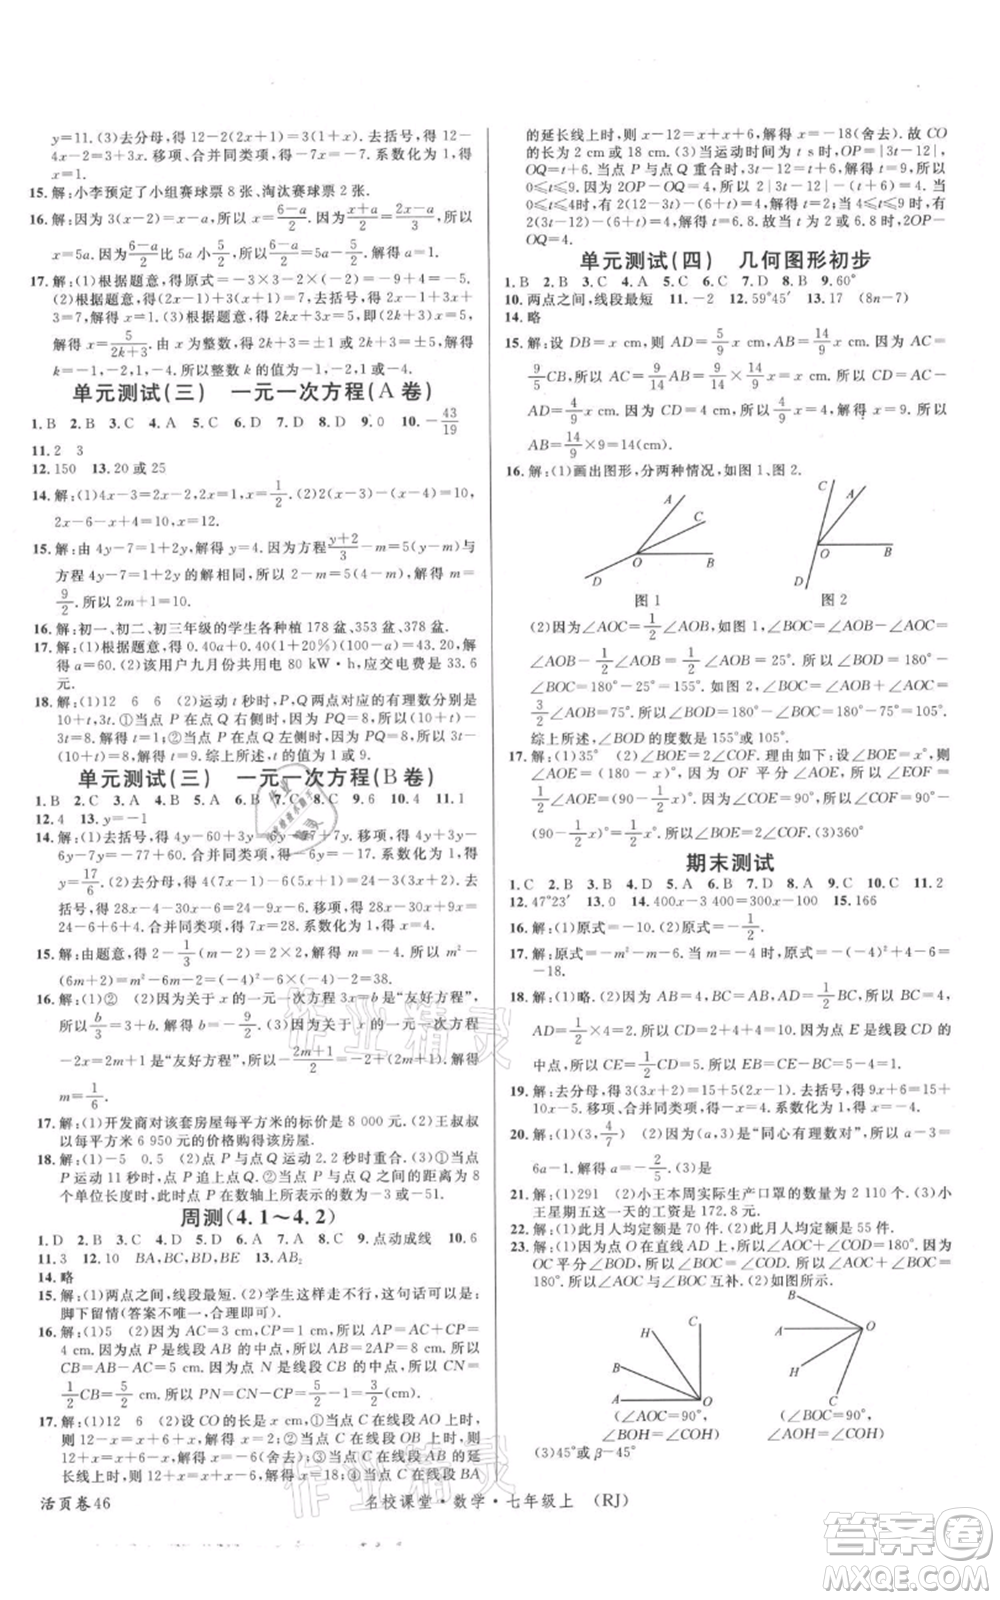 y=11.(3)去分母,得 12-2(2x+1)=3(1+x).去括号,得 12-
4x-2=3+3x.移项、合并同类项,得-7x=-7.系数化为1,得
x=1.
15.解:小李预定了小组赛球票 8 张、淘汰赛球票 2 张.
16.解:因为 3(x-2)=x-a,所以 x=\frac{6-a}{2}.因为\frac{x+a}{2}=\frac{2x-a}{3},所以
x=5a.因为\frac{6-a}{2}比 5a 小\frac{5}{2},所以\frac{6-a}{2}=5a-\frac{5}{2}.解得 a=1.
17.解:(1)根据题意,得原式=-3×3-2×(-2)=-9+4=-5.
(2)根据题意,得 3x-(-2)(x-1)=8.整理,得 5x=10.解得
x=2.(3)根据题意,得 2kx-(-3x)=5.整理,得(2k+3)x=
5.解得 x=\frac{5}{2k+3}.因为 x 为整数,所以 2k+3=±1 或±5.
解得 k=-1,-2,1,-4.所以整数 k 的值为-1,-2,1,-4.
单元测试(三) 一元一次方程(A 卷)
1.B 2.B 3.C 4.A 5.C 6.D 7.B 8.D 9.0 10.-\frac{43}{19}
11.2 3
12.150 13.20 或 25
14.解:(1)4x-3=2x-2,2x=1,x=\frac{1}{2}.(2)2(x-3)-(4x+1)=10,
2x-6-x+4=10,x=12.
15.解:由 4y-7=1+2y,解得 y=4.因为方程\frac{y+2}{3}-m=5(y-m)与
方程 4y-7=1+2y 的解相同,所以 2-m=5(4-m).解得 m=
\frac{9}{2}.所以 2m+1=10.
16.解:初一、初二、初三年级的学生各种植 178 盆、353 盆、378 盆.
17.解:(1)根据题意,得 0.40a+0.40(1+20%)(100-a)=42.4.解
得 a=60.(2)该该用户九月份共用电 80 kW·h,应交电费 33.6
元.
18.解:(1)12 6 6 (2)运动 t 秒时,P,Q 两点对应的有理数分别是
10+t,3t.①当点 P 在点 Q 右侧时,因为 PQ=8,所以(10+t)-
3t=8.解得 t=1;②当点 P 在点 Q 左侧时,因为 PQ=8,所以 3t-
(10+t)=8.解得 t=9.综上所述,t 的值为 1 或 9.
单元测试(三) 一元一次方程(B 卷)
1.B 2.C 3.A 4.A 5.D 6.B 7.C 8.C 9.6 10.4 11.1
12.4 13.y=-1
14.解:(1)去括号,得 4y-60+3y=5y-y+7.移项,得 4y+3y-
6y=7+60-60.合并同类项,得 6y=17.系数化为 1,得
y=\frac{17}{6}.(2)去分母,得 4(7x-1)-6(5x+1)=24-3(3x+2).
去括号,得 28x-4-30x-6=24-9x-6.移项,得 28x-30x+9x=
24-6+6+4.合并同类项,得 7x=28.系数化为 1,得 x=4.
15.解:由题意,得 2-\frac{1}{3}(m-2)=2×2,解得 m=-4,所以 m²-
(6m+2)=m²-6m-2=(-4)²-6×(-4)-2=38.
16.解:(1)② (2)因为关于 x 的一元一次方程 3x=b 是“友好方程”,
所以\frac{b}{3}=3+b.解得 b=-\frac{9}{2}.(3)因为关于 x 的一元一次方程
-2x=2m+1 是“友好方程”,所以-\frac{2m+1}{2}=-2+2m+1.解得
m=\frac{1}{6}.
17.解:(1)开发商对该套房屋每平方米的标价是 8 000 元.(2)王叔叔
以每平方米 6 950 元的价格购得该房屋.
18.解:(1)-5 0.5 (2)点 P 与点 Q 运动 2.2 秒时重合.(3)①当
运动 11 秒时,点 P 追上点 Q.②点 P 与点 Q 之间的距离为 8 个
单位长度时,此时点 P 在数轴上所表示的数为-3 或-51.
周测(4.1～4.2)
1.D 2.B 3.C 4.D 5.B 6.B 7.A 8.C 9.点动成线 10.6
11.3 12.10 BA,BC,BD,BE 13.AB₂
14.略
15.解:(1)两点之间,线段最短.(2)学生这样走不行,这句话可以是:
脚下留情(答案不唯一,合理即可).
16.解:(1)5 (2)因为 AC=3 cm,CP=1 cm,所以 AP=AC+CP=
4 cm.因为点 P 是线段 AB 的中点,所以 AB=2AP=8 cm.所以
CB=AB-AC=5 cm.因为点 N 是线段 CB 的中点,所以 CN=
\frac{1}{2}CB=\frac{5}{2} cm.所以 PN=CN-CP=\frac{3}{2} cm.
17.解:(1)12 6 (2)设 CO 的长是 x cm,①当点 C 在线段 AO 上时,
则 12-x=x+6+x.解得 x=2;②当点 C 在线段 OB 上时,
则 12+x=6-x+x.解得 x=-6(舍去);③当点 C 在线段 AB 的
延长线上时,则 12+x=x-6+x.解得 x=18;④当点 C 在线段 BA
的延长线上时,则 x-12=x+6+x.解得 x=-18(舍去).故 CO
的长为 2 cm 或 18 cm.(3)当运动时间为 t s 时,OP=|3t-12|,
OQ=6+t.当点 P 与点 Q 重合时,3t-12=6+t.解得 t=9.当
0≤t≤9时,因为 2OP-OQ=4,所以 2|3t-12|-(6+t)=4.当
0≤t≤4时,有 2(12-3t)-(6+t)=4.解得 t=2;当 4<t≤9时,有
2(3t-12)-(6+t)=4.解得 t=6.8.故当 t 为 2 或 6.8 时,2OP-
OQ=4.
单元测试(四) 几何图形初步
1.B 2.B 3.C 4.A 5.C 6.C 7.D 8.D 9.60°
10.两点之间,线段最短 11.-2 12.59°45′ 13.17 (8n-7)
14.略
15.解:设 DB=x cm,则 AD=\frac{5}{9}x cm,AB=\frac{14}{9}x cm.因为 AC=
\frac{9}{5}CB,所以 AC=\frac{9}{14}AB=\frac{9}{14}×\frac{14}{9}x=x(cm).所以 CD=AC-
AD=\frac{4}{9}x cm.因为 CD=4 cm,所以\frac{4}{9}x=4.解得 x=9.所以
AB=\frac{14}{9}×9=14(cm).
16.解:(1)画出图形,分两种情况,如图 1、图 2.
A C B O D
图 1
C A O B D
图 2
(2)因为∠AOC=\frac{1}{2}∠AOB,∠AOB=50°,所以∠BOC=
∠AOB-\frac{1}{2}∠AOB=25°.所以∠BOD=180°-∠BOC=
180°-25°=155°或∠BOC=∠AOB+\frac{1}{2}∠AOB=
\frac{3}{2}∠AOB=75°.所以∠BOD=180°-∠BOC=180°-75°=105°.
综上所述,∠BOD 的度数为 155°或105°.
17.解:(1)35° (2)∠BOE=2∠COF.理由如下:设∠BOE=α,
则∠AOE=180°-α.因为 OF 平分∠AOE,所以∠EOF=
\frac{1}{2}(180°-α).因为∠COE=90°,所以∠COF=90°-
(90°-\frac{1}{2}α)=\frac{1}{2}α.所以∠BOE=2∠COF.(3)360°
期末测试
1.C 2.B 3.B 4.A 5.D 6.A 7.D 8.B 9.C 10.C 11.2
12.47°23′ 13.0 14.400x-3 400=300x-100 15.166
16.解:(1)原式=-10.(2)原式=-\frac{1}{2}.
17.解:原式=-x²+4x-6,当 x=-2 时,原式=-(-2)²+4×(-2)-6=
-18.
18.解:(1)略.(2)因为 BC=4,AD=\frac{1}{2}BC,所以 BC=4,
AD=\frac{1}{2}×4=2.所以 CD=2+4+4=10.因为点 E 是线段 CD 的
中点,所以 CE=\frac{1}{2}CD=5.所以 EB=CE-BC=5-4=1.
19.解:去分母,得 3(3x+2)=15+5(2x-5).去括号,得 9x+6=15+
10x-25.移项、合并同类项,得-x=-16.系数化为 1,得 x=16.
20.解:(1)(3,\frac{4}{7}) (2)因为(a,3)是“同心有理数对”,所以 a-3=
6a-1.解得 a=-\frac{2}{5}.(3)是
21.解:(1)291 (2)小王本周实际生产口罩的数量为 2 110 个.(3)小
王星期五这一天的工资是 172.8 元.
22.解:(1)此月人均定额是 70 件.(2)此月人均定额是 65 件.
23.解:(1)因为点 O 在直线 AD 上,所以∠AOC+∠COD=180°.因为
OC 平分∠BOD,所以∠BOC=∠COD.所以∠AOC+∠BOC=
180°.所以∠AOC 与∠BOC 互补.(2)如图所示.
C B H A O
(∠AOC=90°,
∠BOH=∠COH)
B O A H C
(∠AOC=90°,
∠BOH=∠COH)
(3)45°或 β-45°
活页卷 46
名校课堂·数学·七年级上 (RJ)
作业精灵
作业精灵
答案圈
MXQE.COM